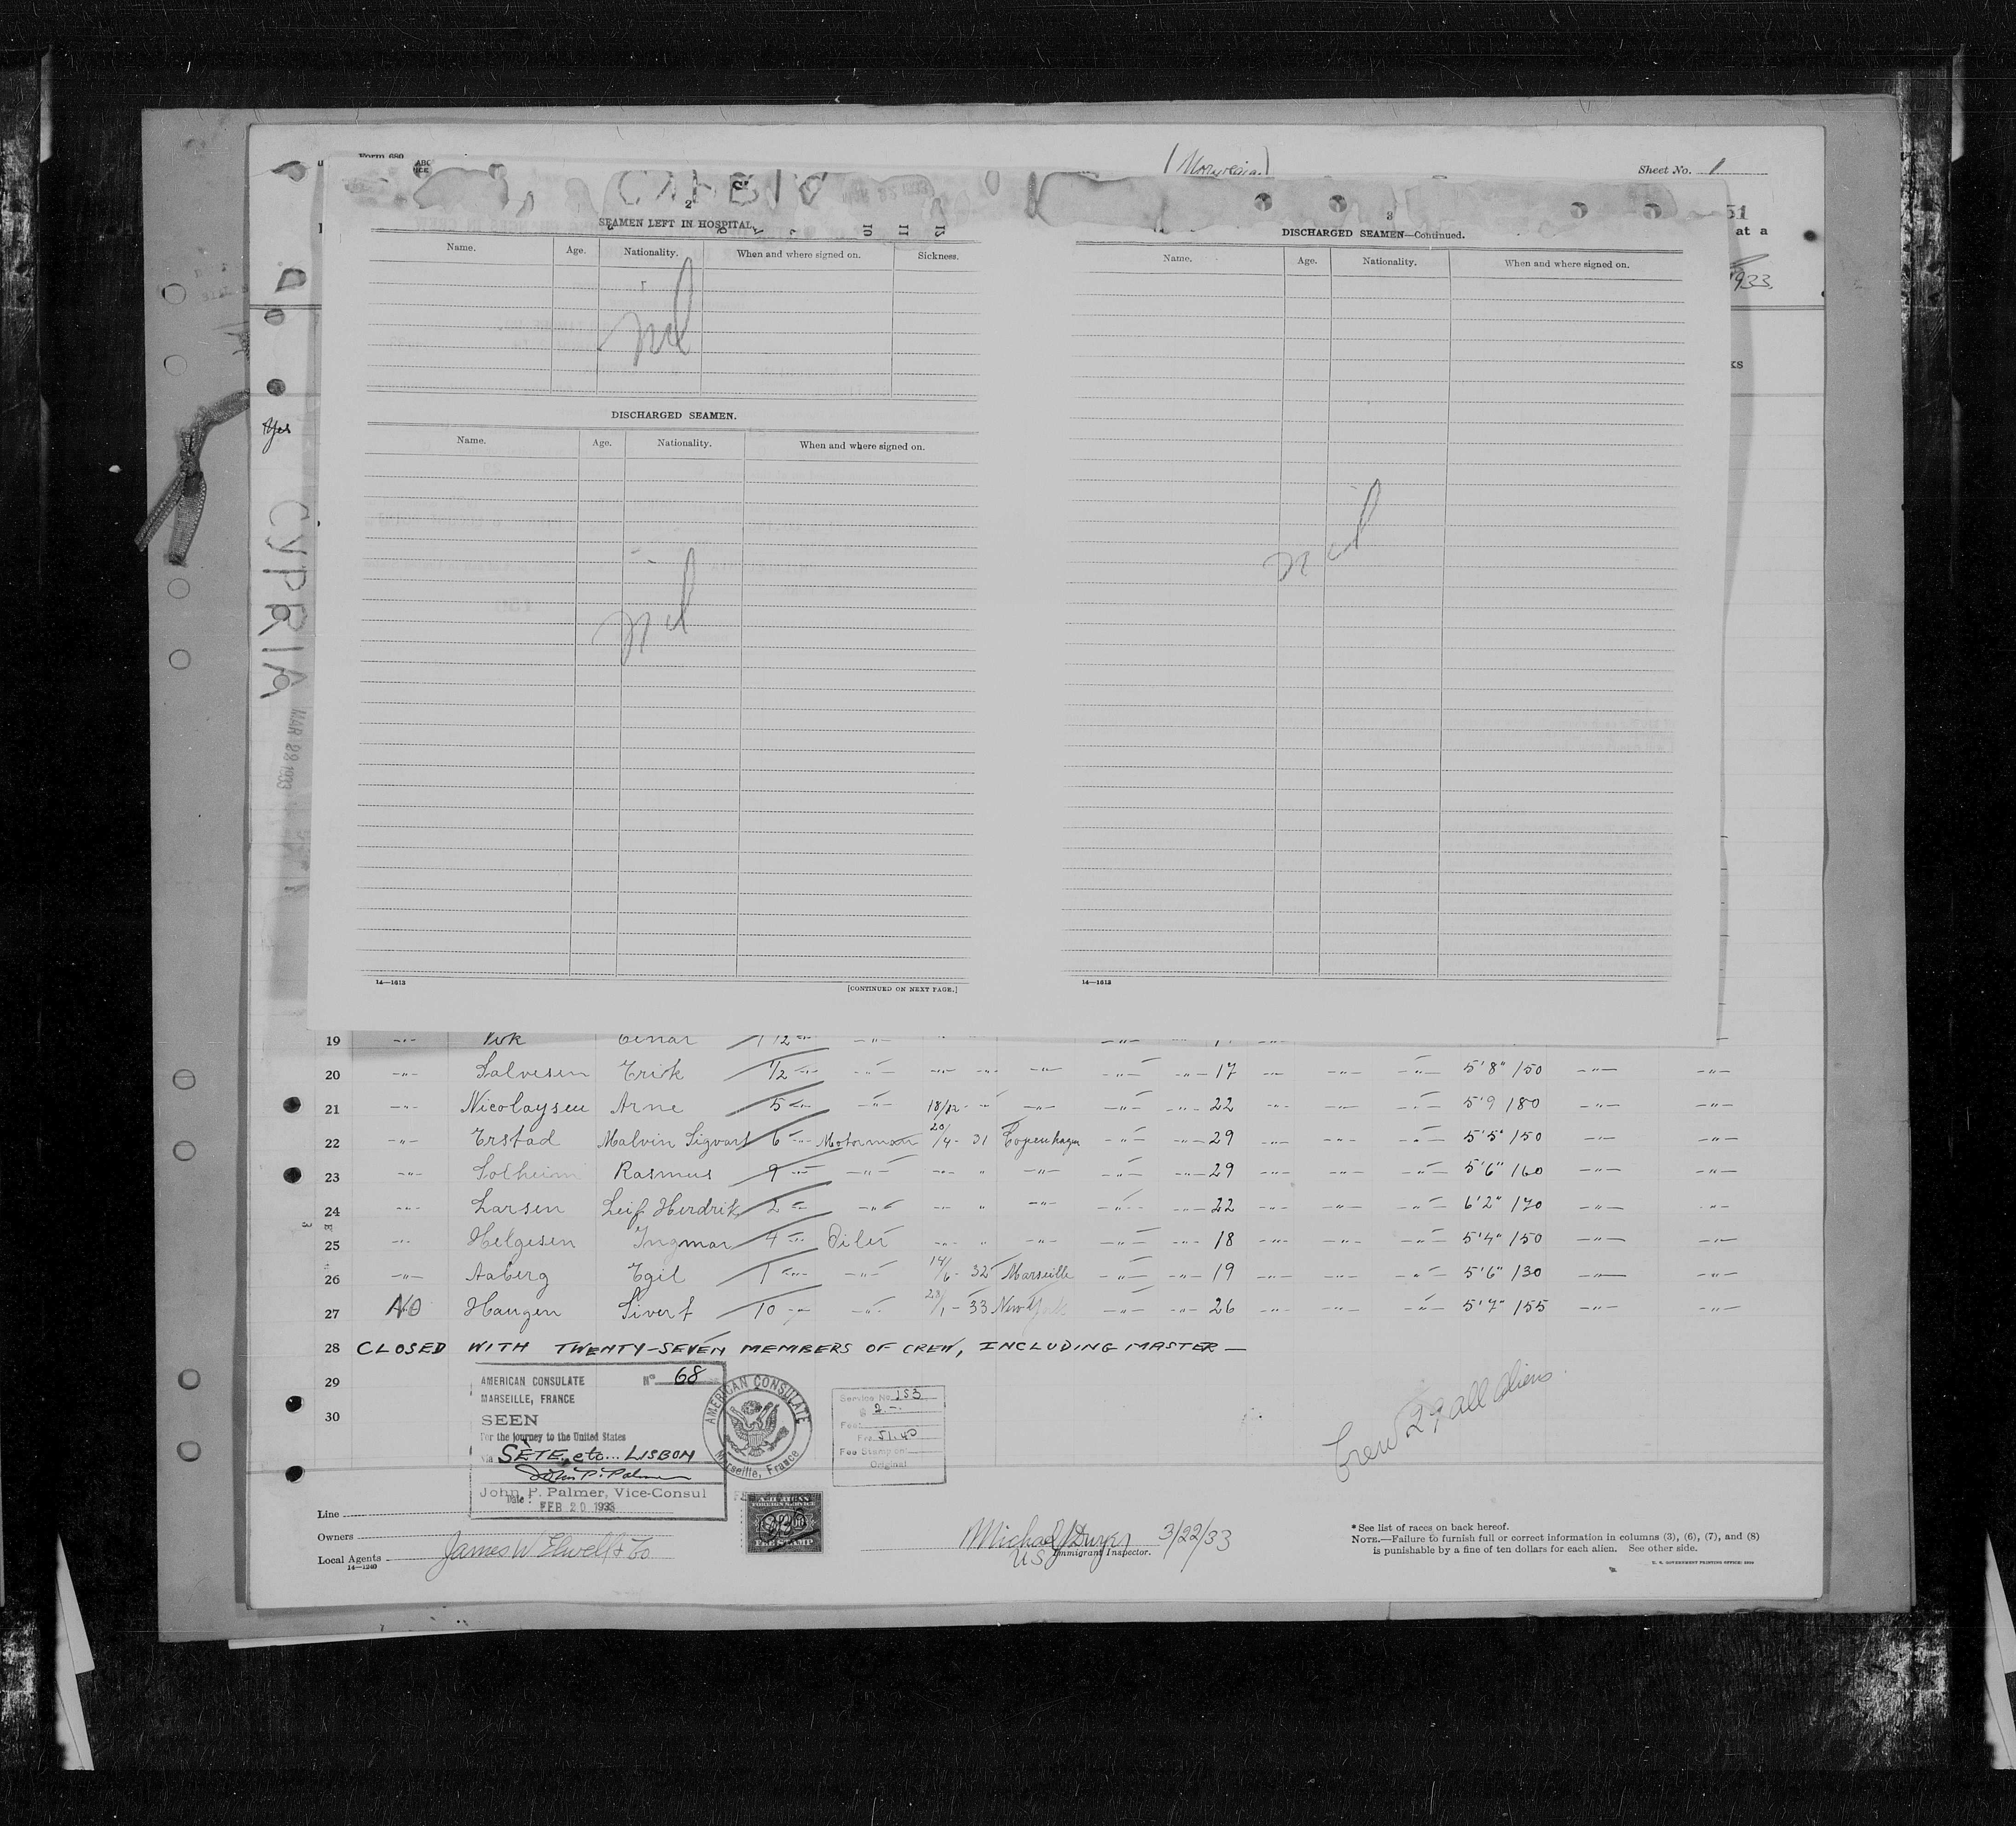 Form 680
(Norwegian)
Sheet No. 1
51
at a
1933.
ks
Yes
CYPRIA
MAR 22 1933
2
SEAMEN LEFT IN HOSPITAL.
Name. Age. Nationality. When and where signed on. Sickness.
nil
DISCHARGED SEAMEN.
Name. Age. Nationality. When and where signed on.
nil
14—1613
[CONTINUED ON NEXT PAGE.]
3
DISCHARGED SEAMEN—Continued.
Name. Age. Nationality. When and where signed on.
nil
14—1613
19 -"- Einar 1/2 -"- -"- -"-
20 -"- Salvesen Erik 1/2 -"- -"- -"- -"- -"- -"- -"- 17 -"- -"- -"- 5'8" 150 -"- -"-
21 -"- Nicolaysen Arne 5 -"- -"- 18/12 -"- -"- -"- -"- 22 -"- -"- -"- 5'9 180 -"- -"-
22 -"- Erstad Malvin Sigvart 6 -"- Motorman 20/4 - 31 Copenhagen -"- -"- 29 -"- -"- -"- 5'5" 150 -"- -"-
23 -"- Solheim Rasmus 9 -"- -"- -"- " -"- -"- -"- 29 -"- -"- -"- 5'6" 160 -"- -"-
24 -"- Larsen Leif Hendrik 2 -"- -"- -"- " -"- -"- -"- 22 -"- -"- -"- 6'2" 170 -"- -"-
25 -"- Helgesen Ingmar 4 -"- Oiler -"- " -"- -"- -"- 18 -"- -"- -"- 5'4" 150 -"- -"-
26 -"- Aaberg Egil 1 -"- -"- 14/6 - 32 Marseille -"- -"- 19 -"- -"- -"- 5'6" 130 -"- -"-
27 NO Haugen Sivert 10 -"- -"- 23/1 - 33 New York -"- -"- 26 -"- -"- -"- 5'7" 155 -"- -"-
28 CLOSED WITH TWENTY-SEVEN MEMBERS OF CREW, INCLUDING MASTER —
29
30
AMERICAN CONSULATE No 68
MARSEILLE, FRANCE
SEEN
For the journey to the United States
via SÈTE, etc... LISBON
John P. Palmer
John P. Palmer, Vice-Consul
Date: FEB 20 1933
AMERICAN CONSULATE
Marseille, France
Service No. 153
@ 2.-
Fee:
Frs 51.40
Fee Stamp on
Original
FOREIGN SERVICE
FEE STAMP
Crew 27 all aliens
Line
Owners
Local Agents James W Elwell & Co
14—1240
Michael J Dwyer 3/22/33
US Immigrant Inspector.
*See list of races on back hereof.
NOTE.—Failure to furnish full or correct information in columns (3), (6), (7), and (8)
is punishable by a fine of ten dollars for each alien. See other side.
U. S. GOVERNMENT PRINTING OFFICE